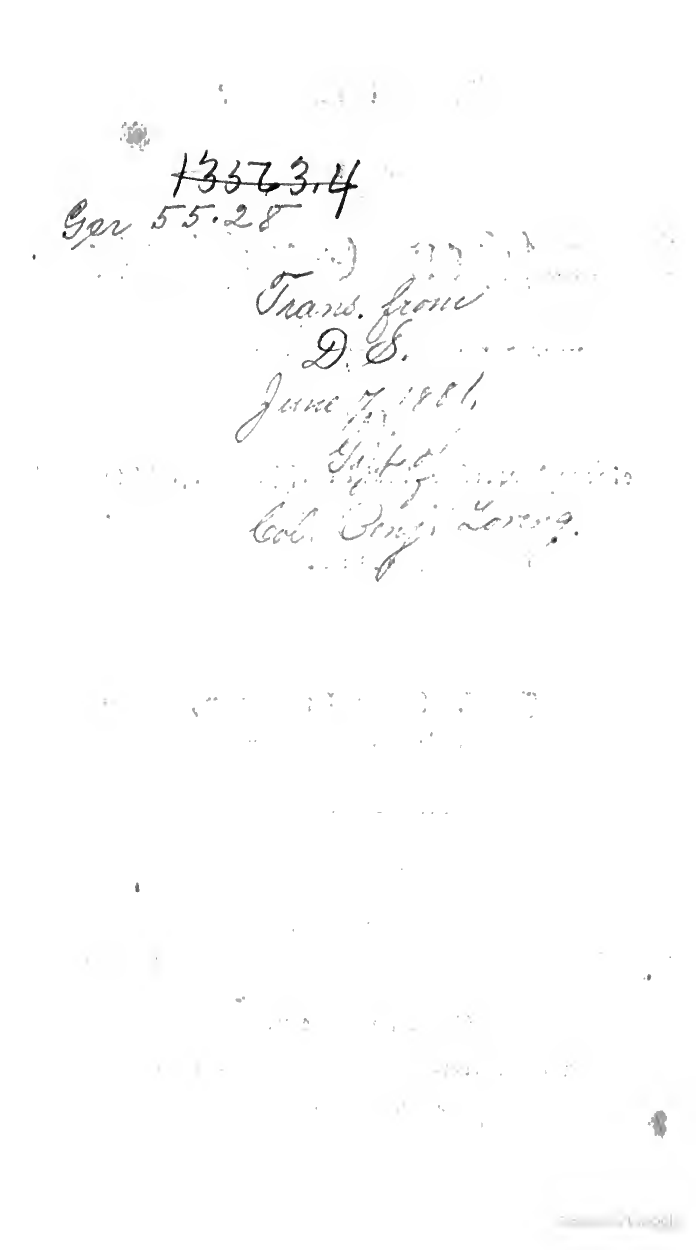 13563.4
Ger 55.28
Trans. from
D. S.
June 7, 1881.
Gift of
Col. Benj. Loring.